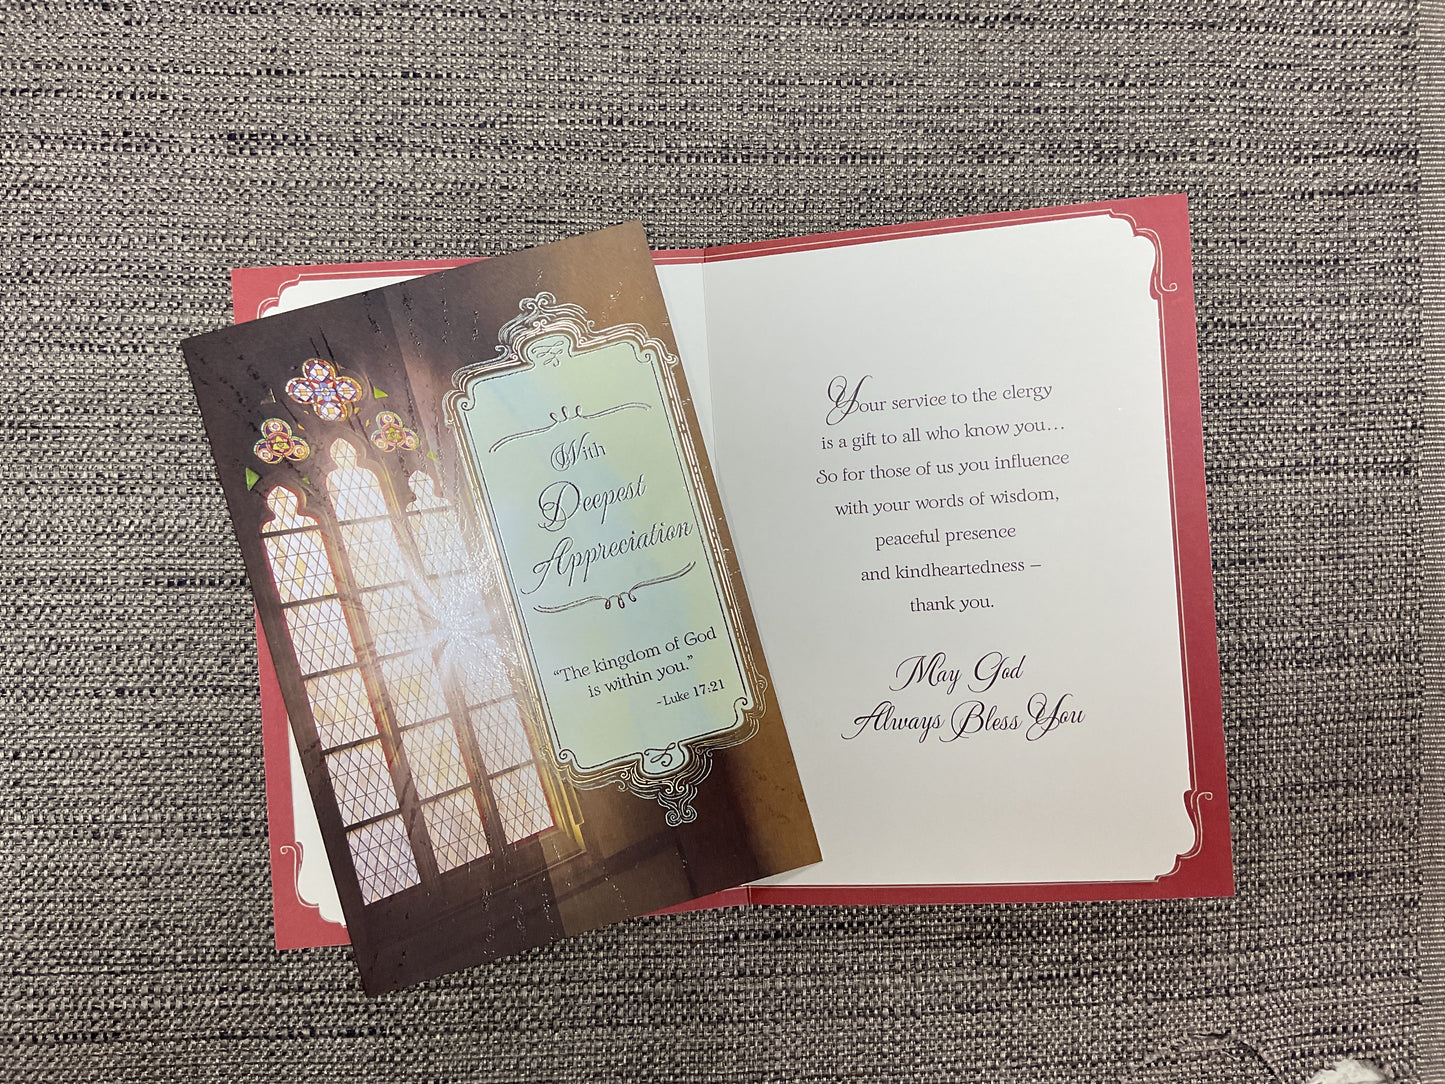 With
Deepest
Appreciation
“The kingdom of God
is within you.”
-Luke 17:21
Your service to the clergy
is a gift to all who know you…
So for those of us you influence
with your words of wisdom,
peaceful presence
and kindheartedness –
thank you.
May God
Always Bless You